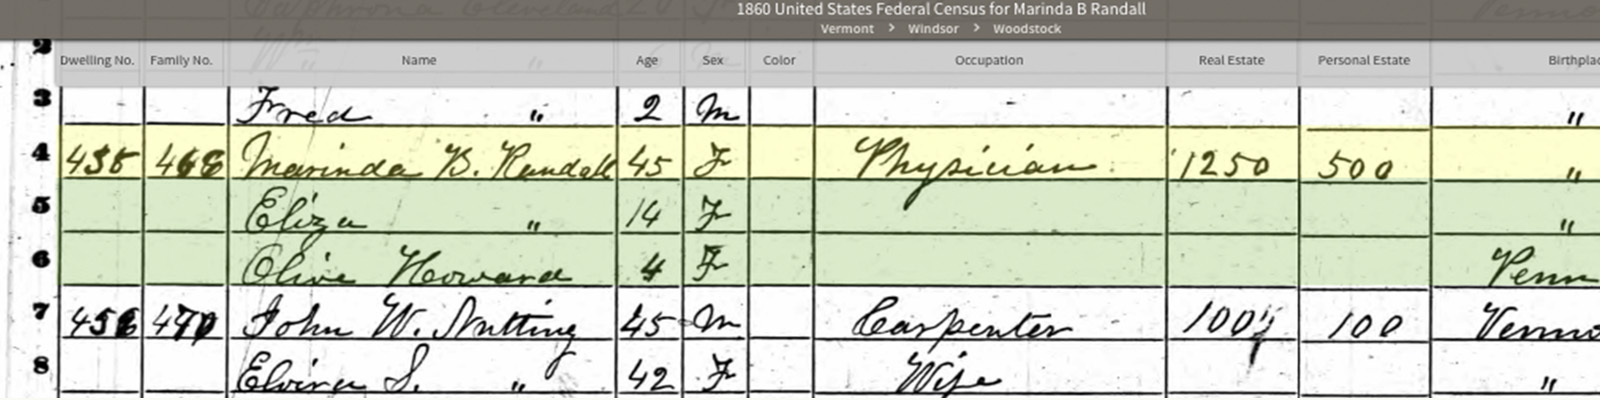 1860 United States Federal Census for Marinda B Randall
Vermont > Windsor > Woodstock
2
Dwelling No. Family No. Name Age Sex Color Occupation Real Estate Personal Estate Birthplac
3 Fred " 2 M "
4 Marinda B. Randall 45 F Physician 1250 500 "
5 Eliza " 14 F "
6 Olive Howard 4 F Penn
7 John W. Nutting 45 M Carpenter 100 Vermo
8 Elvira S. " 42 F Wife "